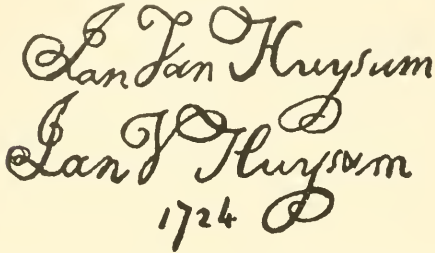 Jan Van Huysum
Jan V Huysum
1724